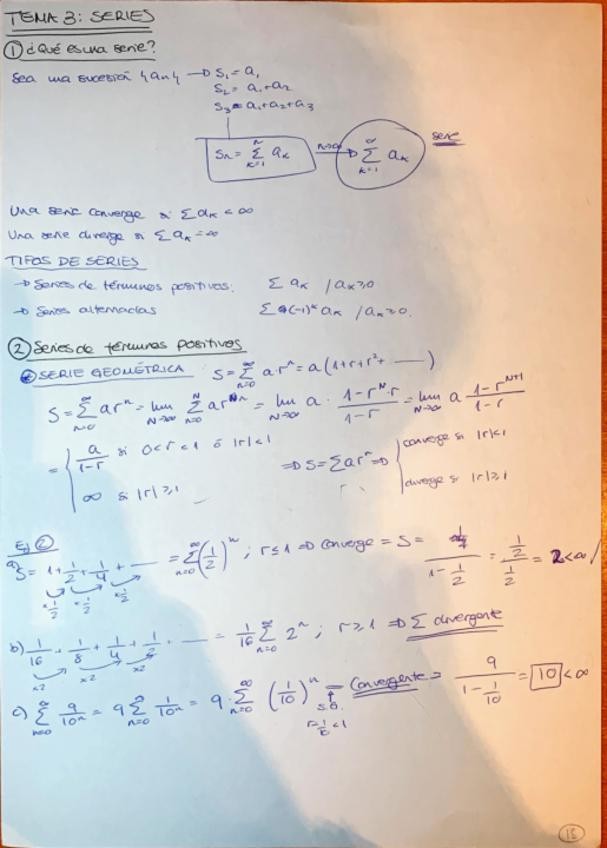 TEMA 3: SERIES
① ¿Qué es una serie?
Sea una sucesión {an} → S₁ = a₁
S₂ = a₁+a₂
S₃ = a₁+a₂+a₃
Sn = Σ_{k=1}^{n} aₖ  n→∞ → Σ_{k=1}^{∞} aₖ  serie
Una serie converge si Σaₖ < ∞
Una serie diverge si Σaₖ = ∞
TIPOS DE SERIES
→ Series de términos positivos: Σ aₖ / aₖ≥0
→ Series alternadas Σ (-1)^k aₖ / aₖ≥0.
② Series de términos positivos
SERIE GEOMÉTRICA S = Σ_{n=0}^{∞} a·rⁿ = a(1+r+r²+ ——)
S = Σ_{n=0}^{∞} arⁿ = lim_{N→∞} Σ_{n=0}^{N} arⁿ = lim_{N→∞} a · (1-r^N·r)/(1-r) = lim_{N→∞} a (1-r^{N+1})/(1-r)
= { a/(1-r) si 0<r<1 ó |r|<1 ⇒ S = Σarⁿ ⇒ { converge si |r|<1
∞ si |r|≥1 diverge si |r|≥1
Ej ②
a) S = 1+1/2+1/4+ —— = Σ_{n=0}^{∞} (1/2)ⁿ ; r≤1 ⇒ converge = S = 1/(1-1/2) = 1/(1/2) = 2<∞ /
×1/2 ×1/2 ×1/2
b) 1/16+1/8+1/4+1/2+ —— = 1/16 Σ_{n=0}^{∞} 2ⁿ ; r≥1 ⇒ Σ divergente
×2 ×2 ×2
c) Σ_{n=0}^{∞} 9/10ⁿ = 9 Σ_{n=0}^{∞} 1/10ⁿ = 9·Σ_{n=0}^{∞} (1/10)ⁿ = Convergente = 9/(1-1/10) = 10 < ∞
S.G.
r=1/10<1
15